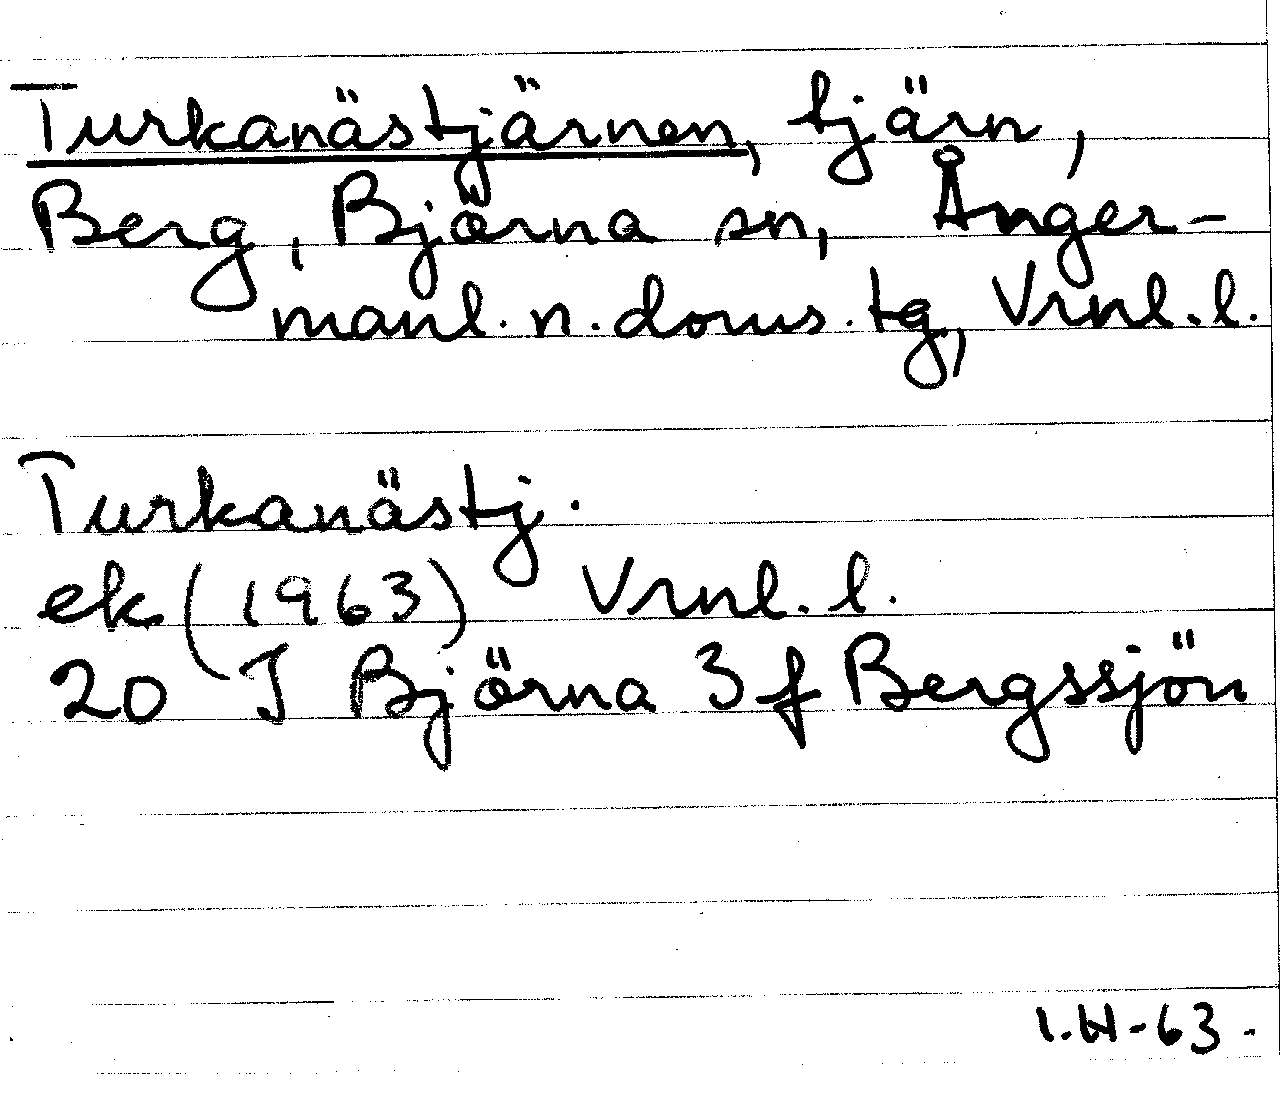 Turkanästjärnen, tjärn,
Berg, Björna sn, Ånger-
manl. n. doms. tg, Vrnl. l.
Turkanästj.
ek (1963) Vrnl. l.
20 I Björna 3 f Bergssjön
I.H-63.